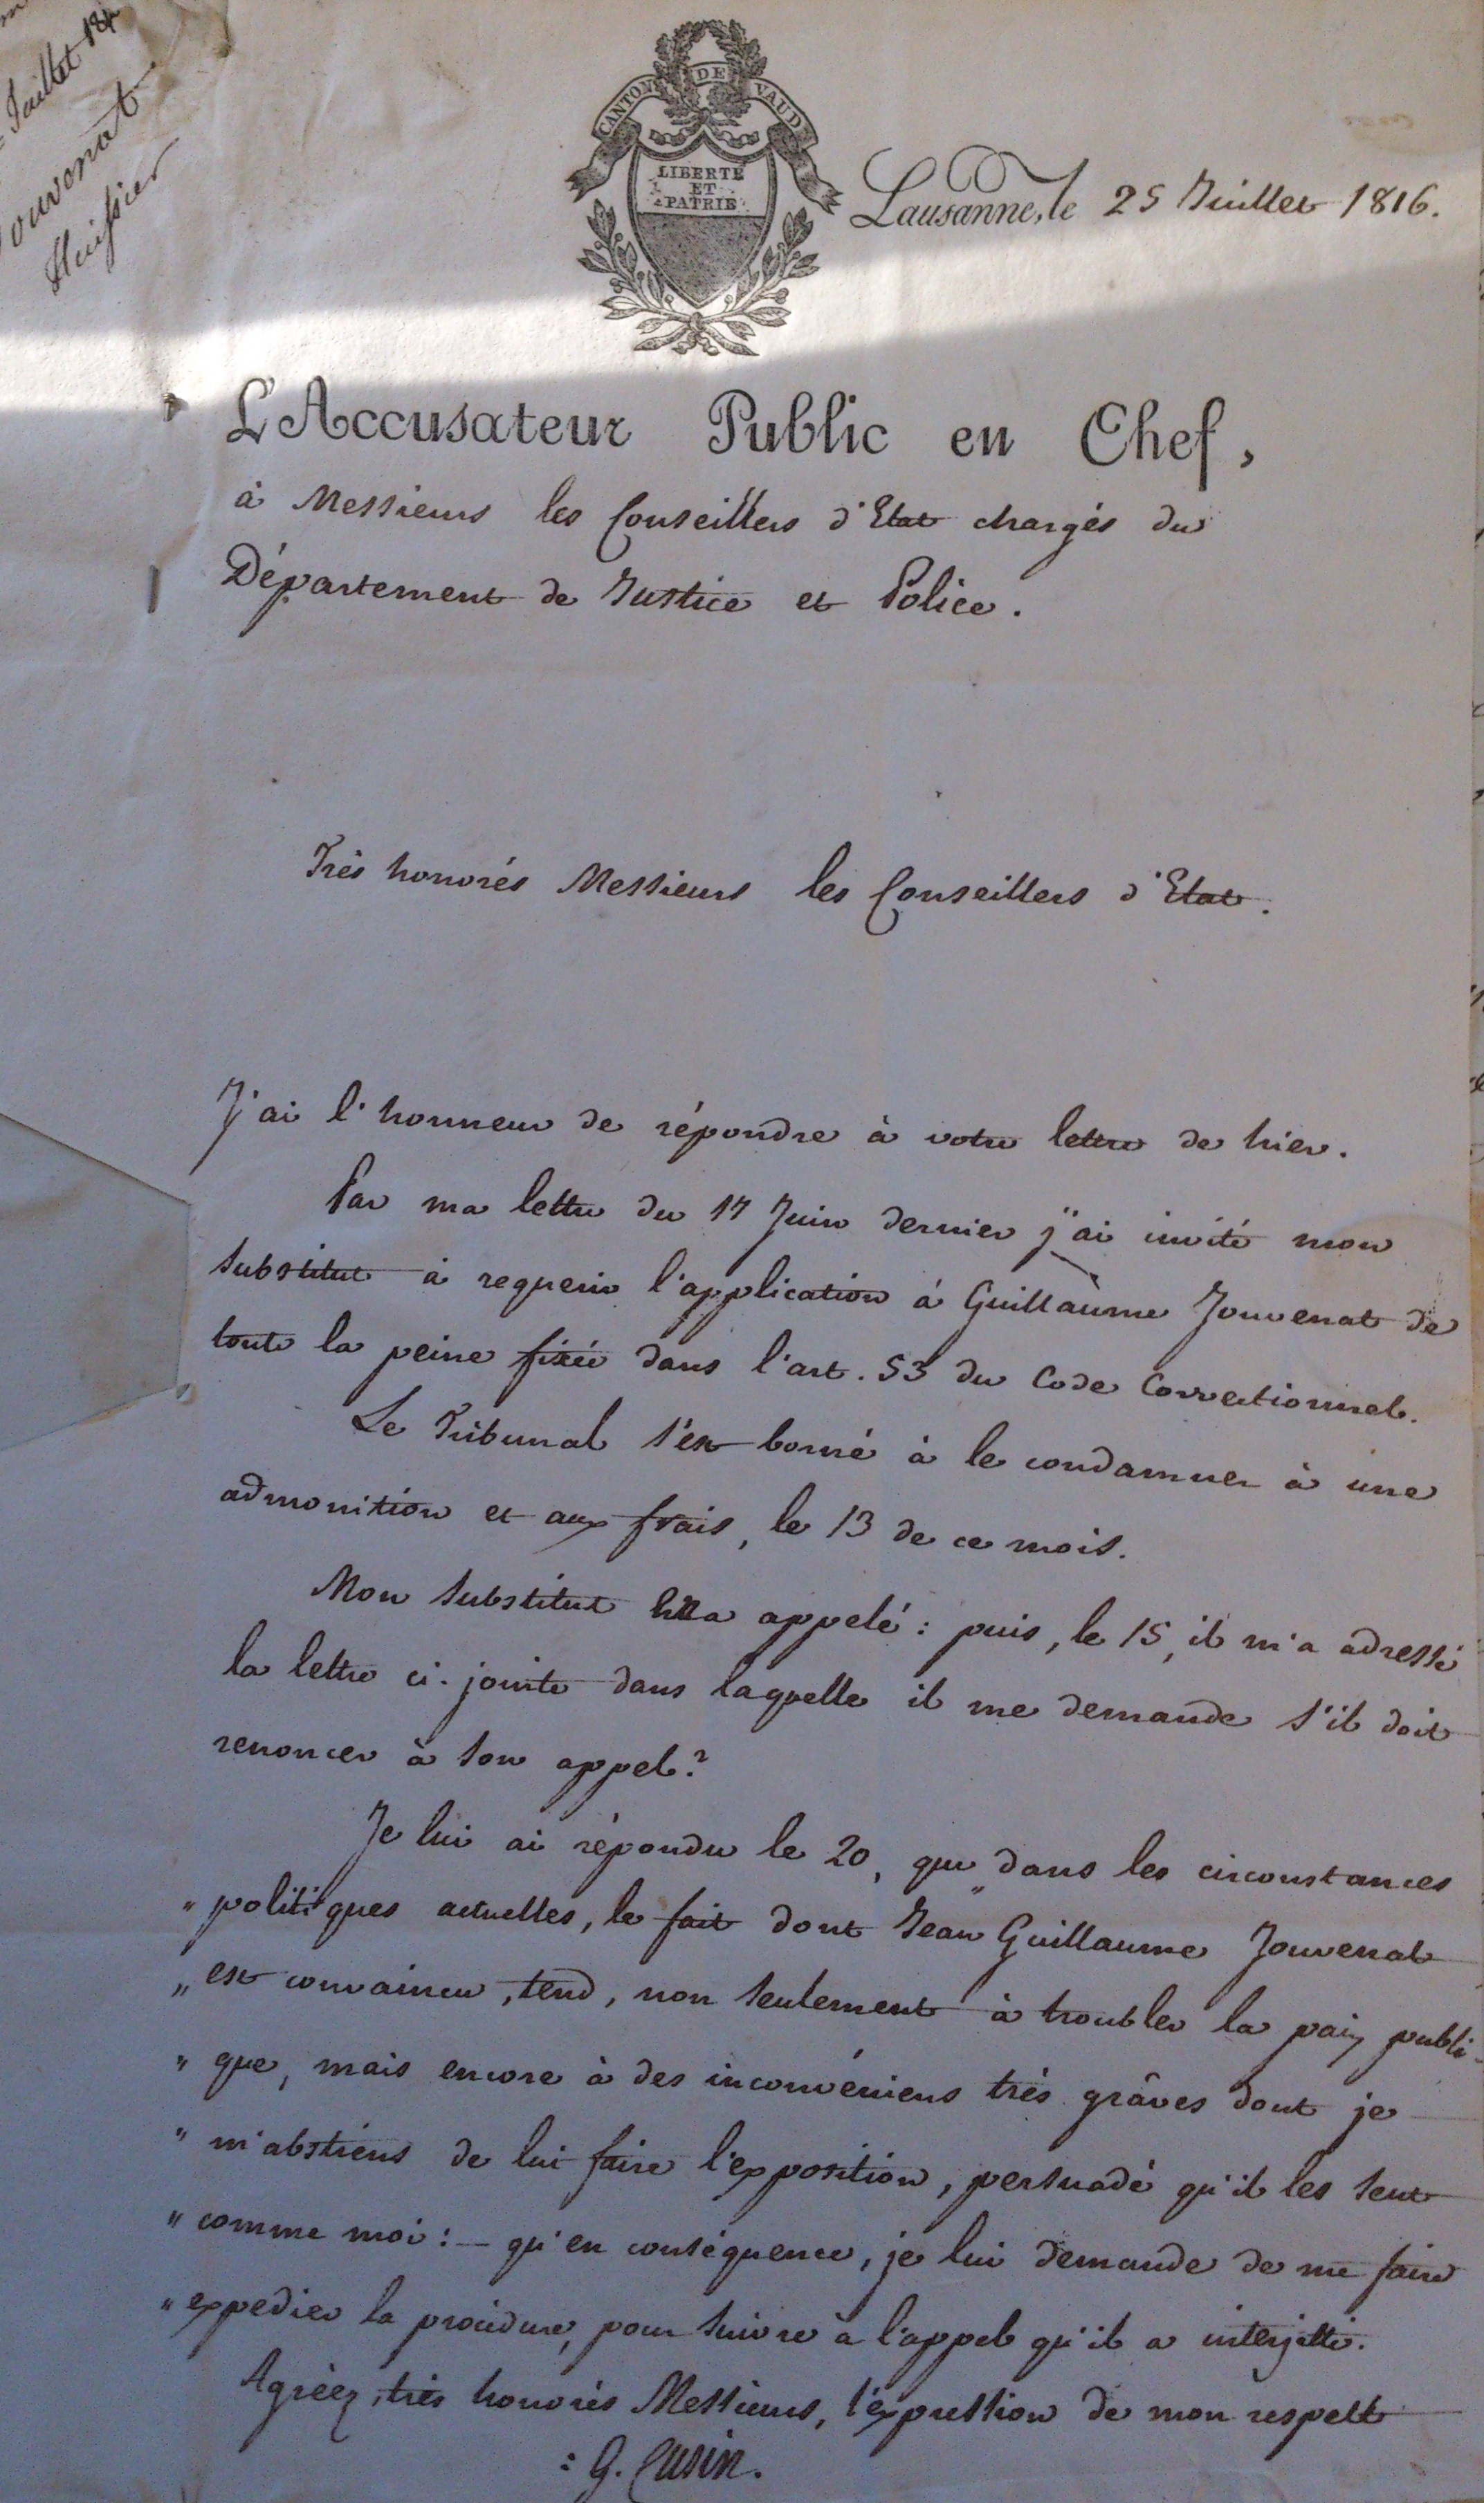 Juillet 18
Jouvenat
Huissier
CANTON DE VAUD
LIBERTE
ET
PATRIE
Lausanne, le 25 Juillet 1816.
L'Accusateur Public en Chef,
à Messieurs les Conseillers d'Etat chargés du
Département de Justice et Police.
Très honorés Messieurs les Conseillers d'Etat.
J'ai l'honneur de répondre à votre lettre de hier.
Par ma lettre du 17 Juin dernier j'ai invité mon
substitut à requerir l'application à Guillaume Jouvenat de
toute la peine fixée dans l'art. 53 du Code Correctionnel.
Le Tribunal s'est borné à le condamner à une
admonition et aux frais, le 13 de ce mois.
Mon substitut en a appelé : puis, le 15, il m'a adressé
la lettre ci-jointe dans laquelle il me demande s'il doit
renoncer à son appel?
Je lui ai répondu le 20, que „dans les circonstances
„politiques actuelles, le fait dont Jean Guillaume Jouvenat
„est convaincu, tend, non seulement à troubler la paix publi-
„que, mais encore à des inconvéniens très grâves dont je
„m'abstiens de lui faire l'exposition, persuadé qu'il les sent
„comme moi : – qu'en conséquence, je lui demande de me faire
„expedier la procédure, pour suivre à l'appel qu'il a interjetté.
Agréez, très honorés Messieurs, l'expression de mon respect
: G. Cusin.